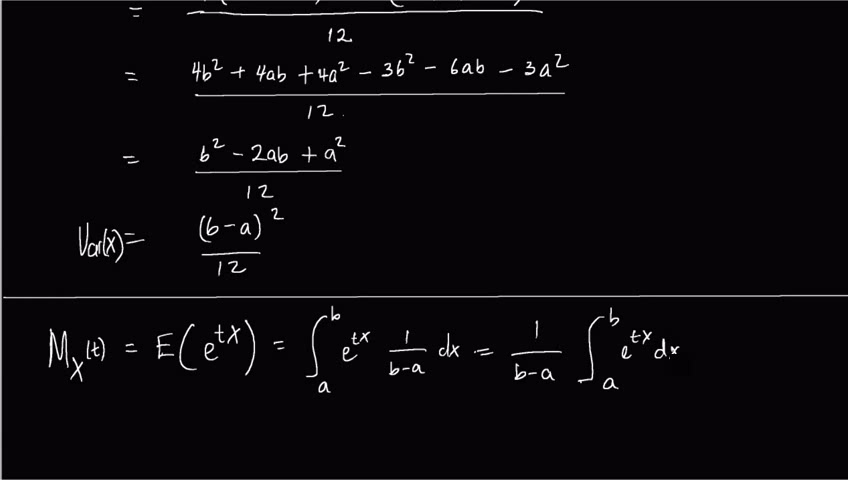 =
12
= 4b² + 4ab + 4a² - 3b² - 6ab - 3a²
12
= b² - 2ab + a²
12
Var(x) = (b-a)²
12
M_X(t) = E(e^{tx}) = ∫_a^b e^{tx} 1/(b-a) dx = 1/(b-a) ∫_a^b e^{tx} dx